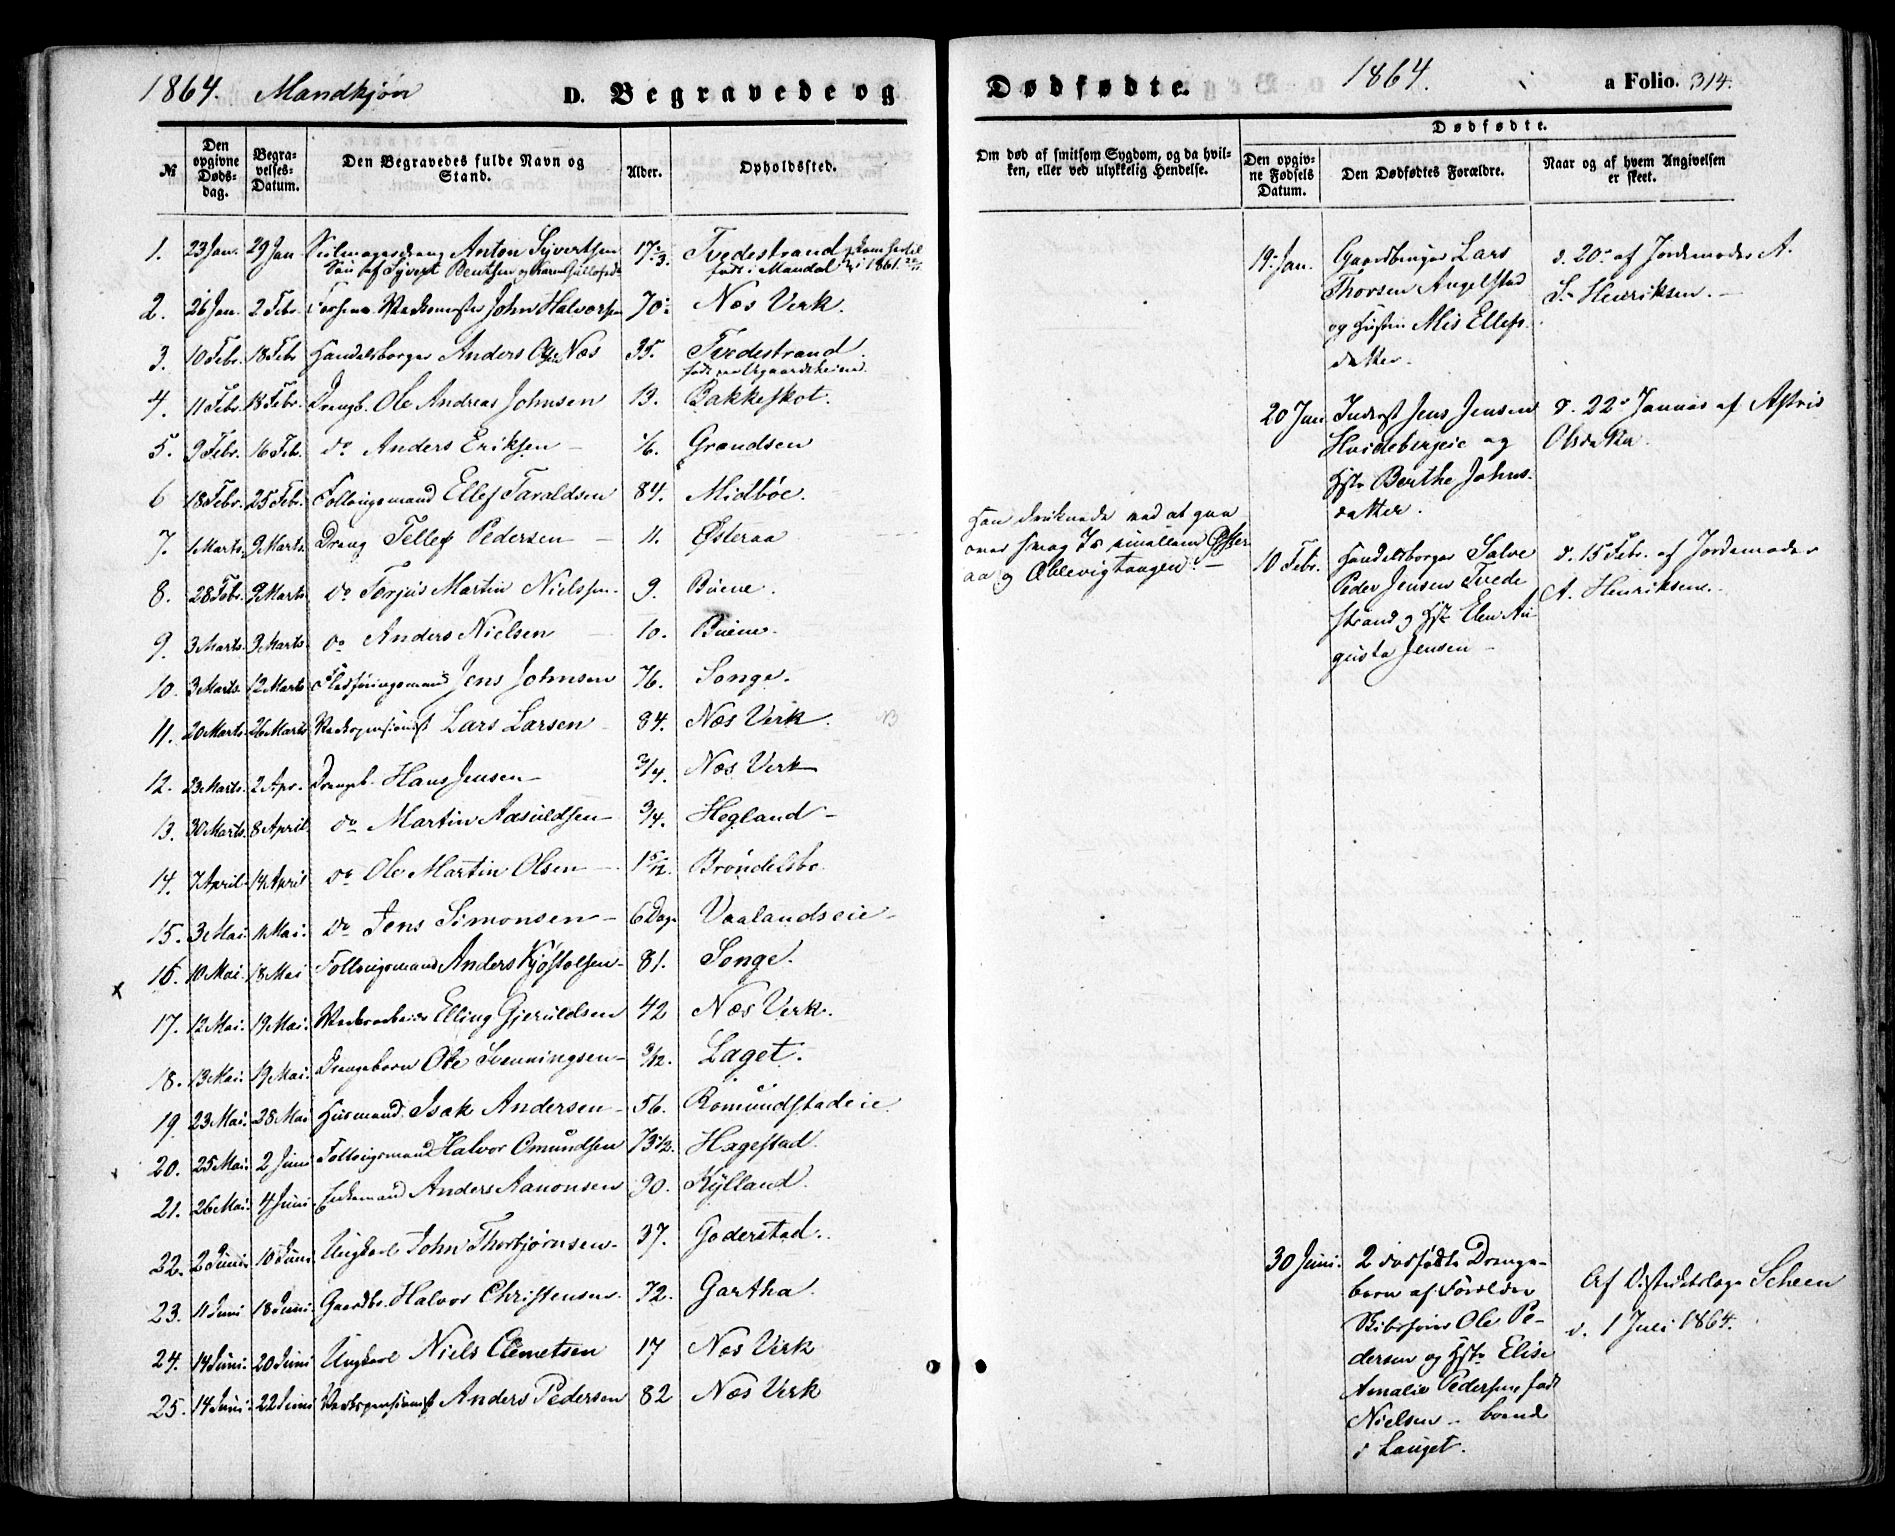 1864. Mandkjøn D. Begravede og
№ Den opgivne Døds-dag. Begra-velses-Datum. Den Begravedes fulde Navn og Stand. Alder. Opholdssted.
1. 23 Jan. 29 Jan Anton Syvertsen 17 Tvedestrand
Søn af Syvert Bentsen og født i Mandal i 1861
2. 26 Jan. 2 Febr. John Halvorsen 70 Næs Verk.
3. 10 Febr. 18 Febr Handelsborger Anders Næs 35. Tvedestrand
4. 11 Febr. 18 Febr. Drengb. Ole Andreas Johnsen 13. Bakkeskot.
5. 9 Febr. 16 Feb. do Anders Eriksen Grandsen
6 18 Febr. 25 Febr. Follougsmand Ellef Taraldsen 84. Midbøe.
7. 1 Marts. 9 Marts. Dreng Tellef Pedersen 11. Østeraa
8. 28 Febr. 9 Marts do Torjus Martin Nielsen 9. Buene.
9. 3 Marts. 9 Marts. do Anders Nielsen 10. Buene.
10. 3 Marts. 12 Marts Jens Johnsen 76. Songe.
11. 20 Marts. 26 Marts Lars Larsen 84. Næs Verk.
12. 23 Marts. 2 Apr. Drengb. Hans Jensen 3/4. Næs Verk
13. 30 Marts. 8 April. do Martin Aasuldsen 3/4. Hegland
14. 7 April 14 April do Ole Martin Olsen Brøndelsbo
15. 3 Mai 11 Mai. do Jens Simonsen 6 Dage Vaalandseie
16. 10 Mai. 18 Mai Follougsmand Anders Kjøstolsen 81. Songe.
x
17. 12 Mai. 19 Mai. Elling Gjeruldsen 42 Næs Verk.
18. 13 Mai. 19 Mai. Drengebarn Ole Svenningsen 3/12. Laget.
19. 23 Mai. 28 Mai Husmand Isak Andersen 56. Romundstadeie.
20. 25 Mai. 2 Juni Follougsmand Halvor Omundsen 73 Hagestad.
21. 26 Mai. 4 Juni Enkemand Anders Aanonsen 90. Kylland.
22. 2 Juni 10 Juni Ungkarl John Thorbjørnsen 37. Goderstad.
23. 11 Juni 18 Juni. Gaardbr. Halvor Christensen 72. Gartha.
24. 14 Juni. 20 Juni Ungkarl Niels Clemetsen 17 Næs Verk
25. 14 Juni. 22 Juni Anders Pedersen 82 Næs Verk
Dødfødte. 1864. a Folio. 314.
Om død af smitsom Sygdom, og da hvil-ken, eller ved ulykkelig Hendelse. Dødfødte.
Den opgiv-ne Fødsels Datum. Den Dødfødtes Forældre. Naar og af hvem Angivelsen er skeet.
Han druknede ved at gaa
over svag Is imellem Øster
aa og
19. Jan. Gaardbruger Lars d. 20 af Jordemoder A.
Thorsen Angelstad S. Henriksen.
og Hustru Alis Ellefs
datter.
20 Jan. Inderst Jens Jensen d. 22 Januar af Astris
Hvidebergeie og Olsdatter.
Hst. Berthe Johns-
datter.
10 Febr. Handelsborger Salve d. 15 Febr. af Jordemoder
Peder Jensen Tvede A. Henriksen.
strand og Hst. Elen Au
gusta Jensen
30 Juni. 2 dødfødte Drenge- Af Distriktslæge Scheen
børn af Forældre d. 1 Juli 1864.
Skibsfører Ole Pe-
dersen og Hst. Elise
Amalie Pedersen født
Nielsen boende
i Lauget.